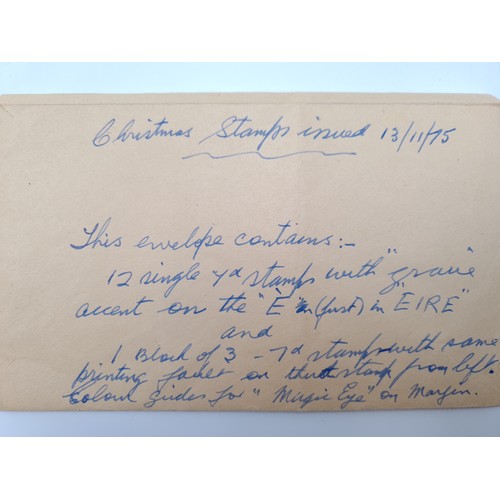 Christmas Stamps issued 13/11/75
This envelope contains:-
12 single 7d stamps with "grave"
accent on the "È" (first) in "EIRE"
and
1 Block of 3 - 7d stamps with same
printing on third stamp from left.
Colour Guides for "Magic Eye" on Margin.